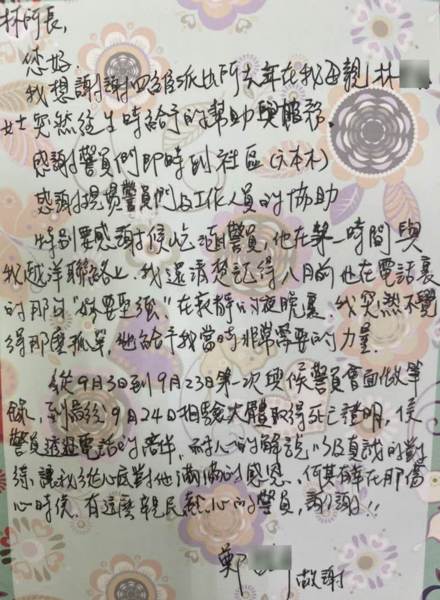 林所長,
您好,
我想謝謝四維派出所去年在我母親林
女士突然往生時給予的幫助與服務.
感謝警員們即時到社區(六本木)
感謝警員們及工作人員的協助
特別要感謝侯 警員,他在第一時間與
我越洋聯絡上.我還清楚記得八月前他在電話裏
的那句"妳要堅強".在寂靜的夜晚裏.我突然不覺
得那麼孤單,他給予我當時非常需要的力量.
從9月3日到9月23日第一次與侯警員會面做筆
錄,到最後9月24日相驗大體取得死亡證明,侯
警員透過電話的陪伴,耐心的解說,以及真誠的對
待,讓我從心底對他滿滿的感恩.何其有幸在那傷
心時候.有這麼親民 心的警員,謝謝!!
鄭 敬謝